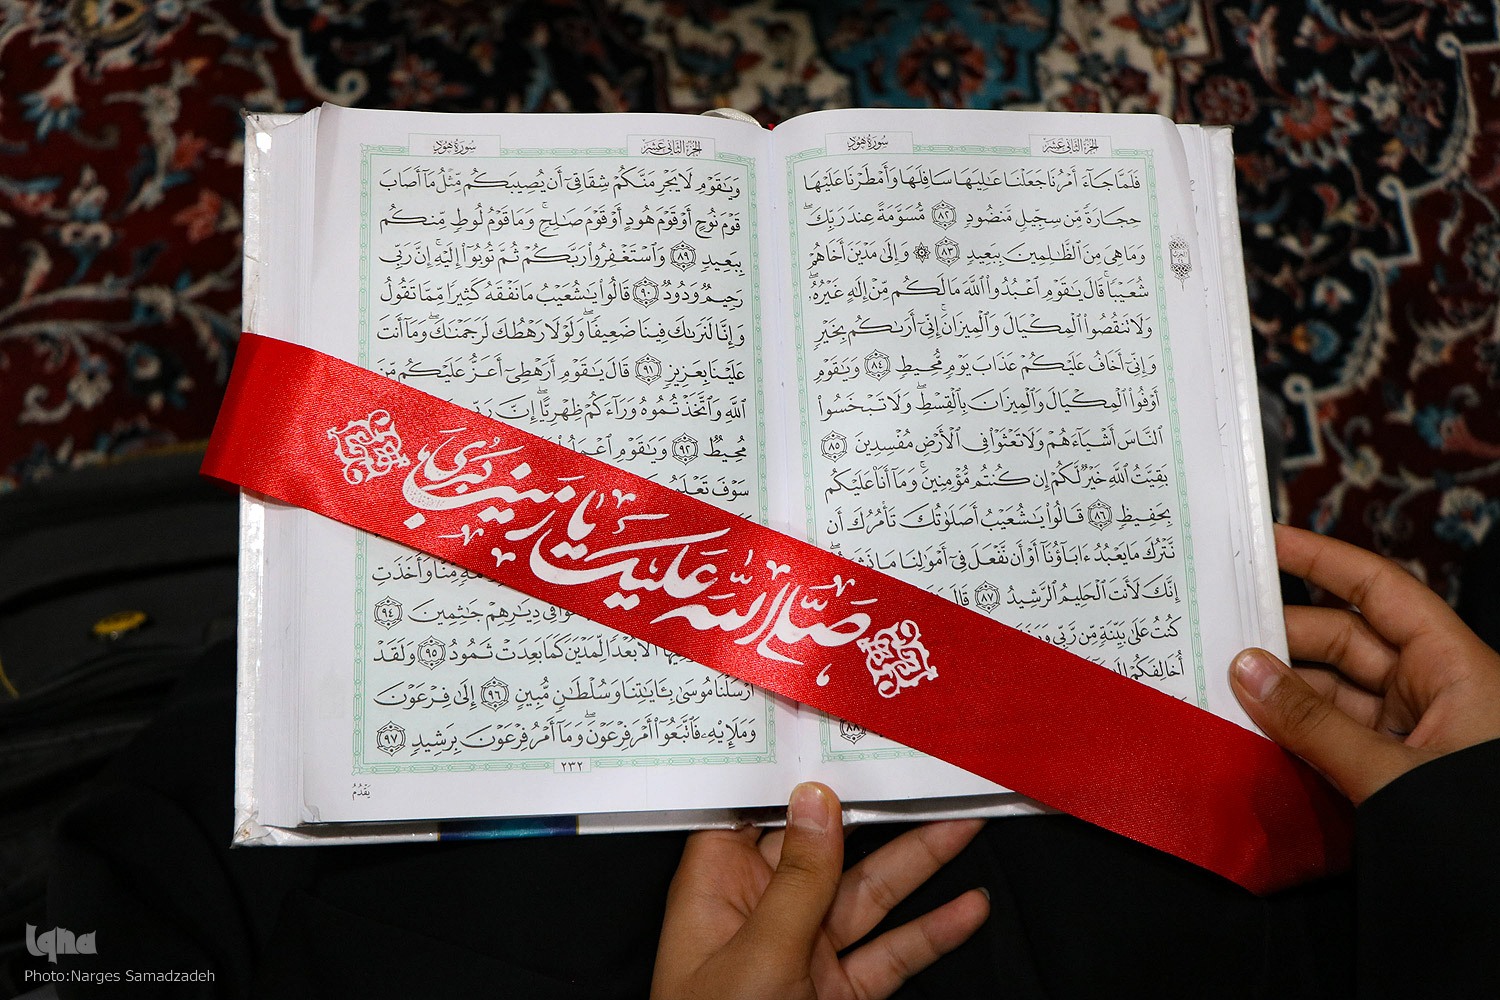 الجزء الثاني عشر
سورة هود
فَلَمَّا جَآءَ أَمْرُنَا جَعَلْنَا عَـٰلِيَهَا سَافِلَهَا وَأَمْطَرْنَا عَلَيْهَا
حِجَارَةً مِّن سِجِّيلٍ مَّنضُودٍ ٨٢ مُّسَوَّمَةً عِندَ رَبِّكَ ۖ
وَمَا هِىَ مِنَ ٱلظَّـٰلِمِينَ بِبَعِيدٍ ٨٣ ۞ وَإِلَىٰ مَدْيَنَ أَخَاهُمْ
شُعَيْبًا ۚ قَالَ يَـٰقَوْمِ ٱعْبُدُوا۟ ٱللَّهَ مَا لَكُم مِّنْ إِلَـٰهٍ غَيْرُهُۥ ۖ
وَلَا تَنقُصُوا۟ ٱلْمِكْيَالَ وَٱلْمِيزَانَ ۚ إِنِّىٓ أَرَىٰكُم بِخَيْرٍ
وَإِنِّىٓ أَخَافُ عَلَيْكُمْ عَذَابَ يَوْمٍ مُّحِيطٍ ٨٤ وَيَـٰقَوْمِ
أَوْفُوا۟ ٱلْمِكْيَالَ وَٱلْمِيزَانَ بِٱلْقِسْطِ ۖ وَلَا تَبْخَسُوا۟
ٱلنَّاسَ أَشْيَآءَهُمْ وَلَا تَعْثَوْا۟ فِى ٱلْأَرْضِ مُفْسِدِينَ ٨٥
بَقِيَّتُ ٱللَّهِ خَيْرٌ لَّكُمْ إِن كُنتُم مُّؤْمِنِينَ ۚ وَمَآ أَنَا۠ عَلَيْكُم
بِحَفِيظٍ ٨٦ قَالُوا۟ يَـٰشُعَيْبُ أَصَلَوٰتُكَ تَأْمُرُكَ أَن
نَّتْرُكَ مَا يَعْبُدُ ءَابَآؤُنَآ أَوْ أَن نَّفْعَلَ فِىٓ أَمْوَٰلِنَا مَا
إِنَّكَ لَأَنتَ ٱلْحَلِيمُ ٱلرَّشِيدُ ٨٧ قَالَ
كُنتُ عَلَىٰ بَيِّنَةٍ مِّن رَّبِّى
أُخَالِفَكُمْ
٨٨
الجزء الثاني عشر
سورة هود
وَيَـٰقَوْمِ لَا يَجْرِمَنَّكُمْ شِقَاقِىٓ أَن يُصِيبَكُم مِّثْلُ مَآ أَصَابَ
قَوْمَ نُوحٍ أَوْ قَوْمَ هُودٍ أَوْ قَوْمَ صَـٰلِحٍ ۚ وَمَا قَوْمُ لُوطٍ مِّنكُم
بِبَعِيدٍ ٨٩ وَٱسْتَغْفِرُوا۟ رَبَّكُمْ ثُمَّ تُوبُوٓا۟ إِلَيْهِ ۚ إِنَّ رَبِّى
رَحِيمٌ وَدُودٌ ٩٠ قَالُوا۟ يَـٰشُعَيْبُ مَا نَفْقَهُ كَثِيرًا مِّمَّا تَقُولُ
وَإِنَّا لَنَرَىٰكَ فِينَا ضَعِيفًا ۖ وَلَوْلَا رَهْطُكَ لَرَجَمْنَـٰكَ ۖ وَمَآ أَنتَ
عَلَيْنَا بِعَزِيزٍ ٩١ قَالَ يَـٰقَوْمِ أَرَهْطِىٓ أَعَزُّ عَلَيْكُم مِّنَ
ٱللَّهِ وَٱتَّخَذْتُمُوهُ وَرَآءَكُمْ ظِهْرِيًّا ۖ إِنَّ
مُحِيطٌ ٩٢ وَيَـٰقَوْمِ
سَوْفَ تَعْلَمُونَ
مِّنَّا وَأَخَذَتِ
فِى دِيَـٰرِهِمْ جَـٰثِمِينَ ٩٤
أَلَا بُعْدًا لِّمَدْيَنَ كَمَا بَعِدَتْ ثَمُودُ ٩٥ وَلَقَدْ
أَرْسَلْنَا مُوسَىٰ بِـَٔايَـٰتِنَا وَسُلْطَـٰنٍ مُّبِينٍ ٩٦ إِلَىٰ فِرْعَوْنَ
وَمَلَإِي۟هِۦ فَٱتَّبَعُوٓا۟ أَمْرَ فِرْعَوْنَ ۖ وَمَآ أَمْرُ فِرْعَوْنَ بِرَشِيدٍ ٩٧
٢٣٢
يَقْدُمُ
صلی الله علیک یا زینب کبری
Iqna
Photo:Narges Samadzadeh